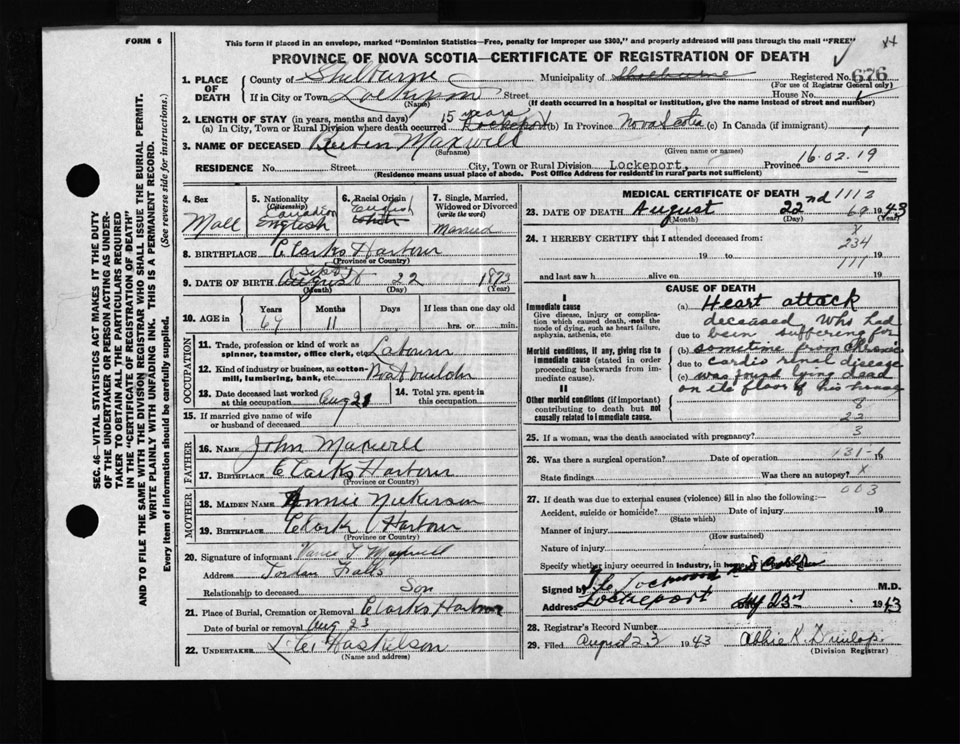 FORM 6
This form if placed in an envelope, marked "Dominion Statistics—Free, penalty for improper use $300," and properly addressed will pass through the mail "FREE"
PROVINCE OF NOVA SCOTIA—CERTIFICATE OF REGISTRATION OF DEATH
1. PLACE OF DEATH County of Shelburne Municipality of Shelburne Registered No. 676
(For use of Registrar General only)
If in City or Town Lockeport Street House No.
(Name) (If death occurred in a hospital or institution, give the name instead of street and number)
2. LENGTH OF STAY (in years, months and days) 15 years
(a) In City, Town or Rural Division where death occurred Lockeport (b) In Province Nova Scotia (c) In Canada (if immigrant)
3. NAME OF DECEASED Reuben Maxwell
(Surname) (Given name or names)
16.02.19
RESIDENCE No. Street. City, Town or Rural Division Lockeport, Province
(Residence means usual place of abode. Post Office Address for Residents in rural parts not sufficient)
4. Sex Male
5. Nationality (Citizenship) Canadian English
6. Racial Origin English White
7. Single, Married, Widowed or Divorced (write the word) Married
8. BIRTHPLACE Clarks Harbour
(Province or Country)
9. DATE OF BIRTH Sept August 22 1873
(Month) (Day) (Year)
10. AGE in Years Months Days If less than one day old
69 11 hrs. or min.
OCCUPATION
11. Trade, profession or kind of work as spinner, teamster, office clerk, etc. Labourer
12. Kind of industry or business, as cotton-mill, lumbering, bank, etc. Boat builder
13. Date deceased last worked at this occupation Aug 21
14. Total yrs. spent in this occupation
15. If married give name of wife or husband of deceased
FATHER
16. NAME John Maxwell
17. BIRTHPLACE Clarks Harbour
(Province or Country)
MOTHER
18. MAIDEN NAME Annie Nickerson
19. BIRTHPLACE Clark Harbour
(Province or Country)
20. Signature of informant Maxwell
Address Jordan Falls
Relationship to deceased Son
21. Place of Burial, Cremation or Removal Clarks Harbour
Date of burial or removal Aug 23
22. UNDERTAKER
(Name and address)
MEDICAL CERTIFICATE OF DEATH
1113
23. DATE OF DEATH August 22nd 69 1943
(Month) (Day) (Year)
24. I HEREBY CERTIFY that I attended deceased from: X
234
19 to 19
111
and last saw h alive on 19
CAUSE OF DEATH
I
Immediate cause
Give disease, injury or complication which caused death, not the mode of dying, such as heart failure, asphyxia, asthenia, etc.
(a) Heart attack
deceased who had
due to been suffering for
Morbid conditions, if any, giving rise to immediate cause (stated in order proceeding backwards from immediate cause).
(b) sometime from Chronic
due to cardio renal disease
(c) was found lying dead
on the floor of his house
II
Other morbid conditions (if important) contributing to death but not causally related to immediate cause
8
23
25. If a woman, was the death associated with pregnancy? 3
26. Was there a surgical operation? Date of operation 131-6
State findings Was there an autopsy? X
27. If death was due to external causes (violence) fill in also the following:— 003
Accident, suicide or homicide? Date of injury 19
(State which)
Manner of injury
(How sustained)
Nature of injury
Specify whether injury occurred in industry, in home
Signed by Lockwood M.D.
Address Lockeport 23rd 1943
28. Registrar's Record Number
29. Filed August 23 1943 Abbie K. Dunlop.
(Division Registrar)
SEC. 46—VITAL STATISTICS ACT MAKES IT THE DUTY
OF THE UNDERTAKER OR PERSON ACTING AS UNDER-
TAKER TO OBTAIN ALL THE PARTICULARS REQUIRED
IN THE "CERTIFICATE OF REGISTRATION OF DEATH"
AND TO FILE THE SAME WITH THE DIVISION REGISTRAR WHO SHALL ISSUE THE BURIAL PERMIT.
WRITE PLAINLY WITH UNFADING INK. THIS IS A PERMANENT RECORD.
Every item of information should be carefully supplied. (See reverse side for instructions.)